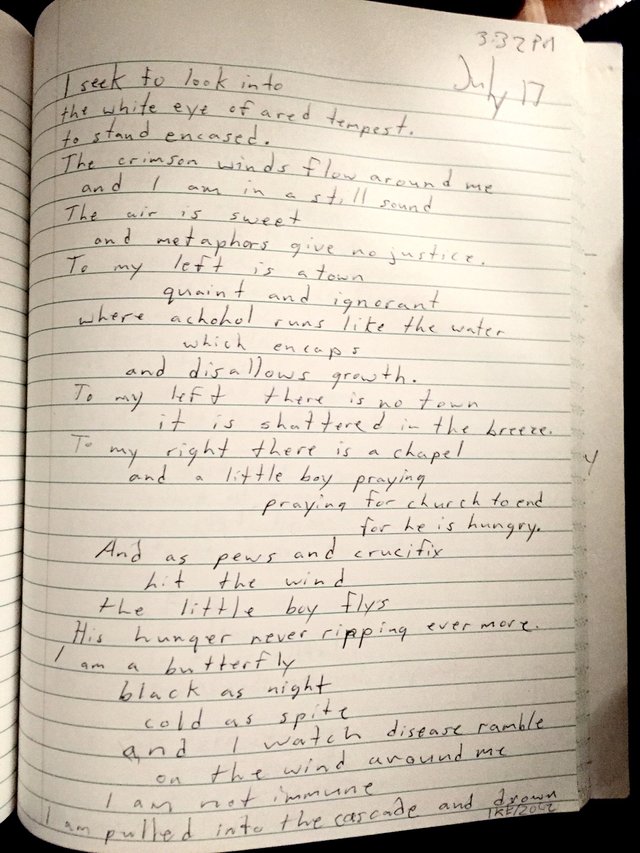 3:32 PM
July 17
I seek to look into
the white eye of a red tempest.
to stand encased.
The crimson winds flow around me
and I am in a still sound
The air is sweet
and metaphors give no justice.
To my left is a town
quaint and ignorant
where achohol runs like the water
which encaps
and disallows growth.
To my left there is no town
it is shattered in the breeze.
To my right there is a chapel
and a little boy praying
praying for church to end
for he is hungry.
And as pews and crucifix
hit the wind
the little boy flys
His hunger never ripping ever more.
I am a butterfly
black as night
cold as spite
and I watch disease ramble
on the wind around me
I am not immune
I am pulled into the cascade and drown